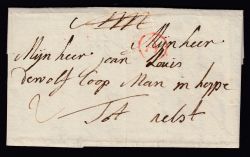 Mijnheer
Mijnheer jan Louis
de wolf Coop Man in hoppe
Tot aelst